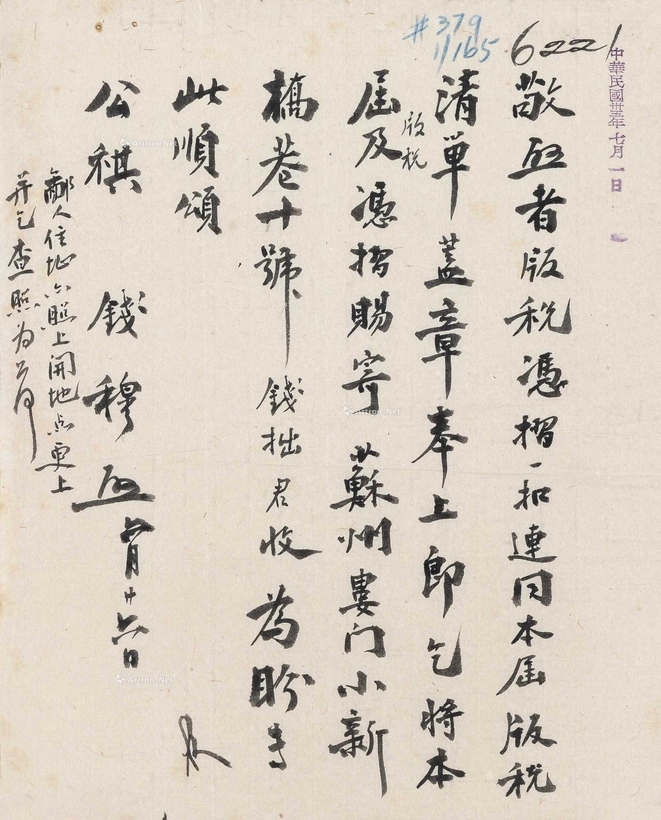 #379
1/165
6221
中華民國卅五年七月一日
敬啟者版税憑摺一扣連同本屆版税
清單蓋章奉上即乞將本
屆版税及憑摺賜寄蘇州婁门小新
橋巷十號錢拙君收為盼专
此順頌
公祺 錢穆啟 六月廿六日
鄙人住址亦照上開地点更上
并乞查照为荷